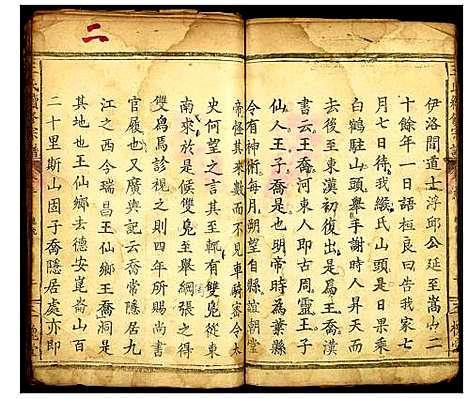 伊洛間道士浮邱公延至嵩山二
十餘年一日語桓良曰告我家七
月七日待我緱氏山頭是日果乘
白鶴駐山頭舉手謝時人昇天而
去後至東漢初復出為王喬漢
書云王喬河東人即古周靈王子
仙人王子喬是也明帝時為葉縣
令有神術每月朔望自縣詣朝堂
帝怪其來數而不見車騎密令太
史伺望之言其至有雙鳧從東
南來於是候雙鳧至舉網張之得
雙舄焉診視之則四年所賜尚書
官履也又輿記云喬常隱居九
江之西今瑞昌王仙鄉王喬洞是
其地也王仙鄉去德安崑崙山百
二十里斯山固子喬隱居處亦即
二
王氏續修宗譜